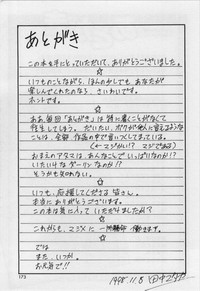 あとがき
この本を手にとっていただいて、ありがとうございました。
☆
いつものことながら、ほんの少しでも、あなたが
楽しんでくれたのなら、さいわいです。
ホントです。
☆
ああ、毎回「あとがき」は特に書くことがなくて
苦労してしまう。だいたい、ボクが他人に言えるような
ことは、全部、作品の中で言っつくしてしまってる。
(←マジかい!? マジである)
おまえのアタマは、あんなことで、いっぱいなのか!?
いたいけなダーリンなのか!?
そうかも知れない。
☆
いつも、応援してくださる皆さん。
本当にありがとうございます。
この本は気に入っていただけましたか?
☆
これからも、マジメに働きます。
では
また、いつか。
お元気で!!
1998.11.8
173